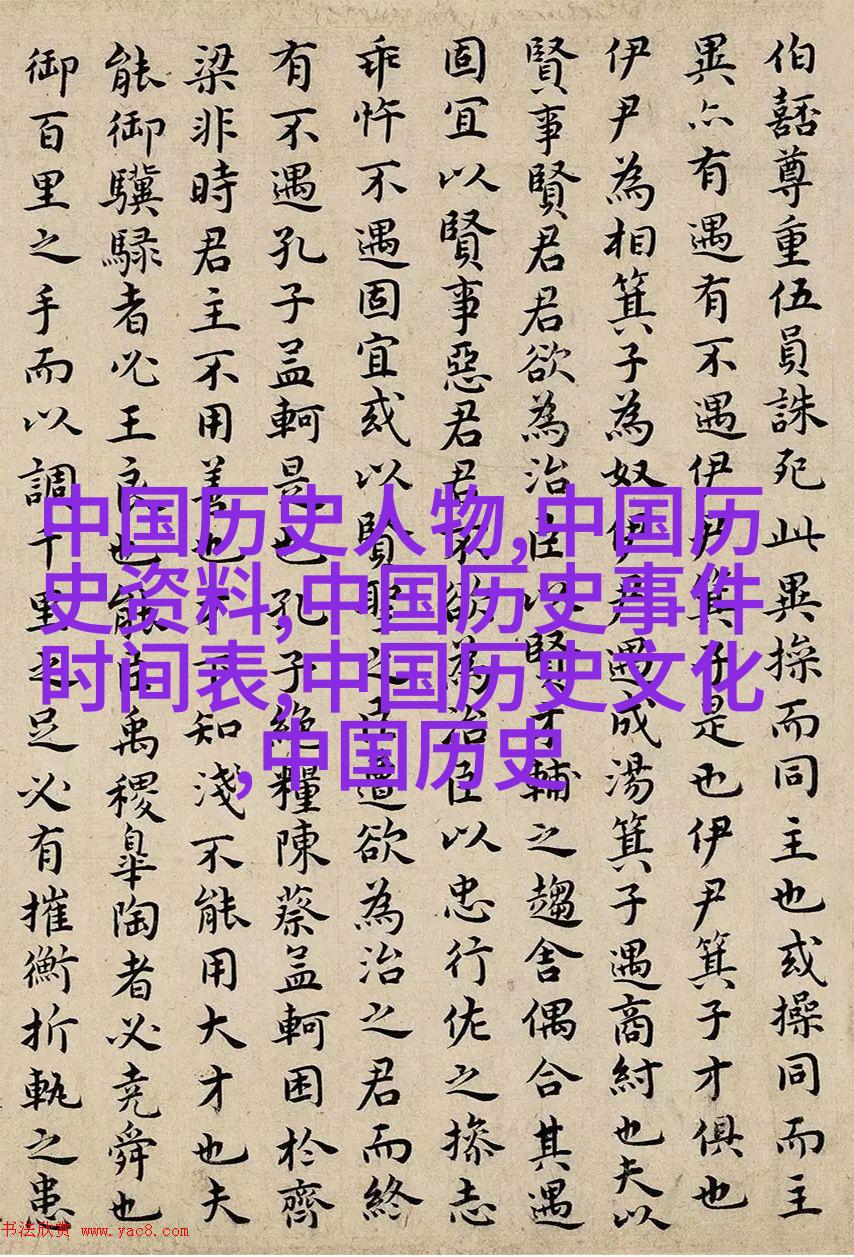 伯嚭尊重伍員誅死此異操而同主也或操同而主
異亦有遇有不遇伊尹箕子是也伊尹箕子才俱也
伊尹為相箕子為奴伊尹遇成湯箕子遇商紂也夫以
賢事賢君君欲為治臣以賢才輔之趨舍偶合其遇
固宜以賢事惡君君不欲為治臣以忠行佐之操志
乖忤不遇固宜或以賢聖之臣遭欲為治之君而終
有不遇孔子孟軻是也孔子絕糧陳蔡孟軻困於齊
梁非時君主不用善也才下知淺不能用大才也夫
能御驥騄者必王良也能臣禹稷皋陶者必堯舜也
御百里之手而以調千里之足必有摧衡折軛之患
中国历史人物,中国历
史资料,中国历史事件
时间表,中国历史文化
,中国历史
书法欣赏 www.yac8.com